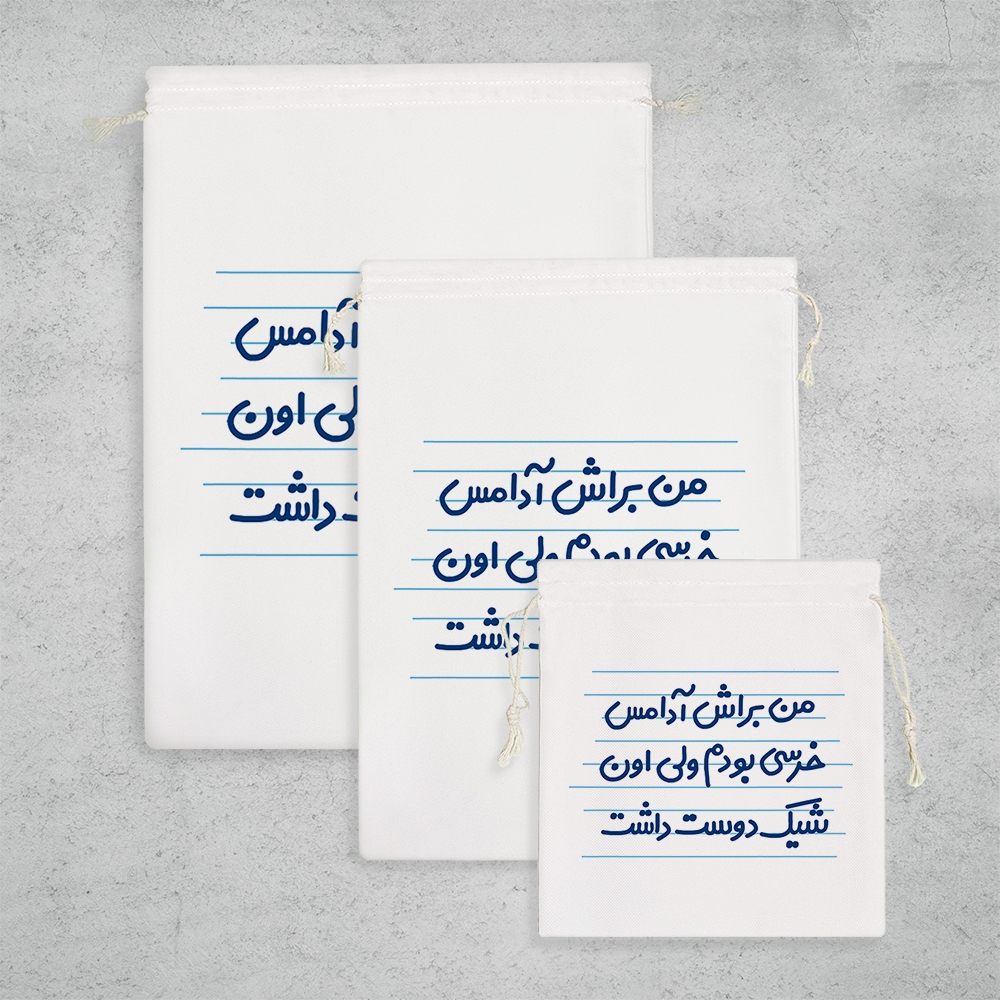 آدامس
ولی اون
داشت
من براش آدامس
خرسی بودم ولی اون
داشت
من براش آدامس
خرسی بودم ولی اون
شیک دوست داشت